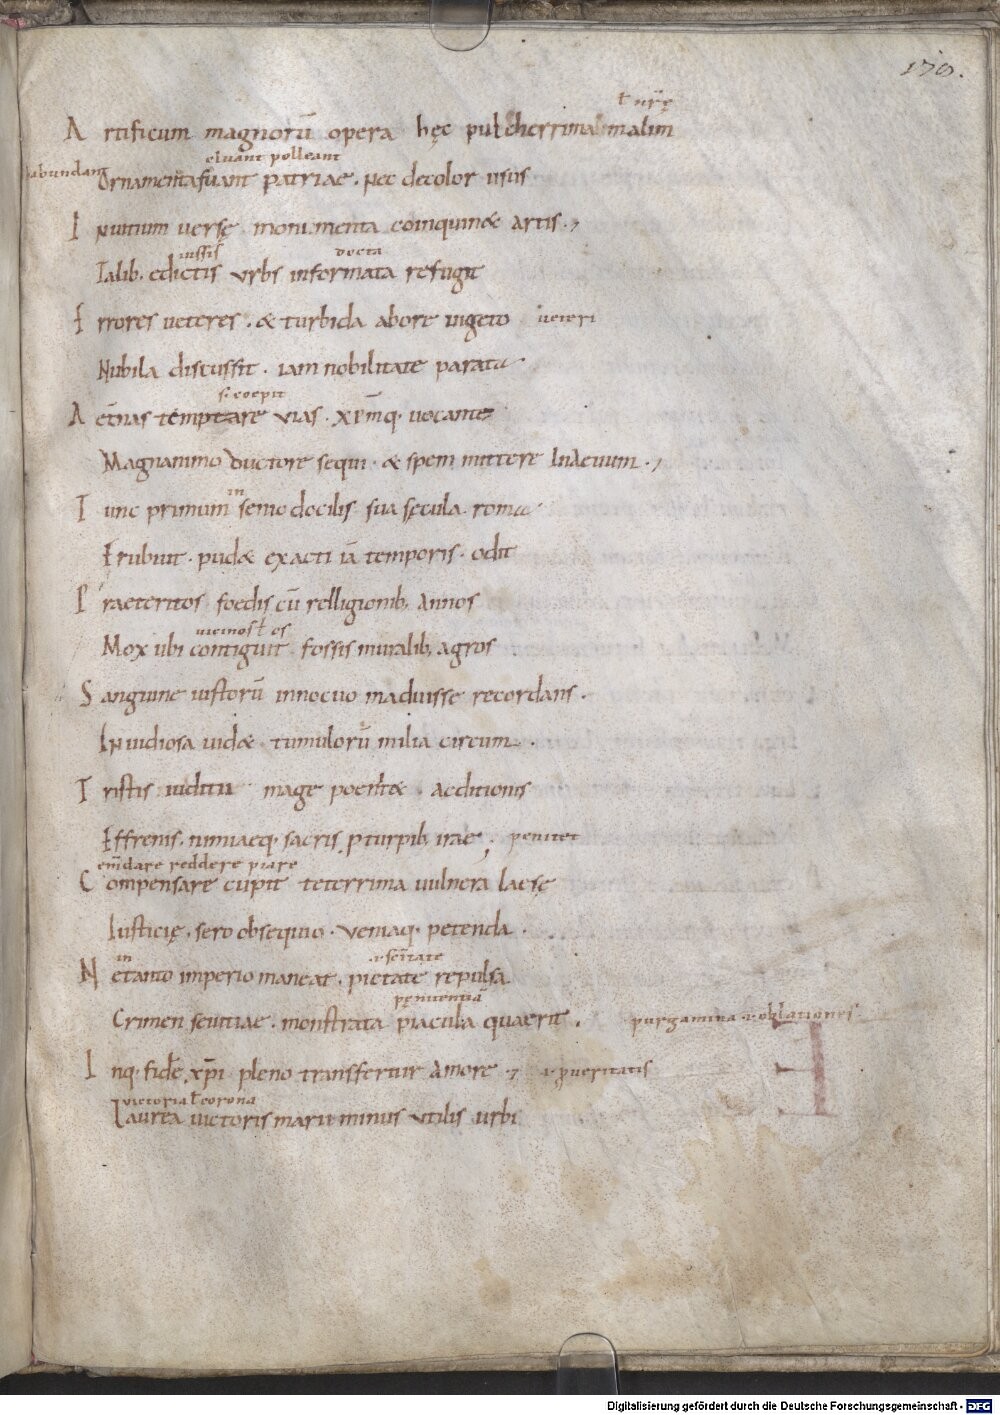 170.
ł nr̄ę
A rtificum magnorū opera hęc pulcherrima malim
habundant eluant polleant
Ornamenta fuant patriae. Nec decolor usus
I n uitium uersę monumenta coinquin& artis.,
iussis docta
Talib. edictis urbs informata refugit
E rrores ueteres. & turbida ab ore uigeto ueteri
Nubila discussit. iam nobilitate parata
s. coepit
A et̄nas temptare vias. xp̄mq. uocante
Magnanimo ductore sequi. & spem mittere In aeuum.,
in
T unc primum senio docilis sua sęcula roma
Erubuit. pud& exacti iā temporis. odit
P raeteritos foedis cū relligionib; annos
uicinos ł es
Mox ubi contiguis fossis muralib; agros
S anguine iustorū innocuo maduisse recordans.
Inuidiosa uid& tumulorū milia circum.
T ristis iudicii mage poenit&. acditionis
Effrenis. nimiaeq. sacris p turpib; irae. penitet
em̄dare reddere piare
C ompensare cupit teterrima uulnera laesę
Iusticię. sero obsequio. veniaq. petenda.
in .i. sen̄tate
N e tanto imperio maneat. pietate repulsa
pęnitentiā
Crimen seuitiae. monstrata piacula quaerit. purgamina .i. oblationes
I nq. fidē xp̄i pleno transfertur amore., .i. p̄ ueritatis
victoria ł corona
Laurea uictoris marii minus utilis urbi
Digitalisierung gefördert durch die Deutsche Forschungsgemeinschaft - DFG